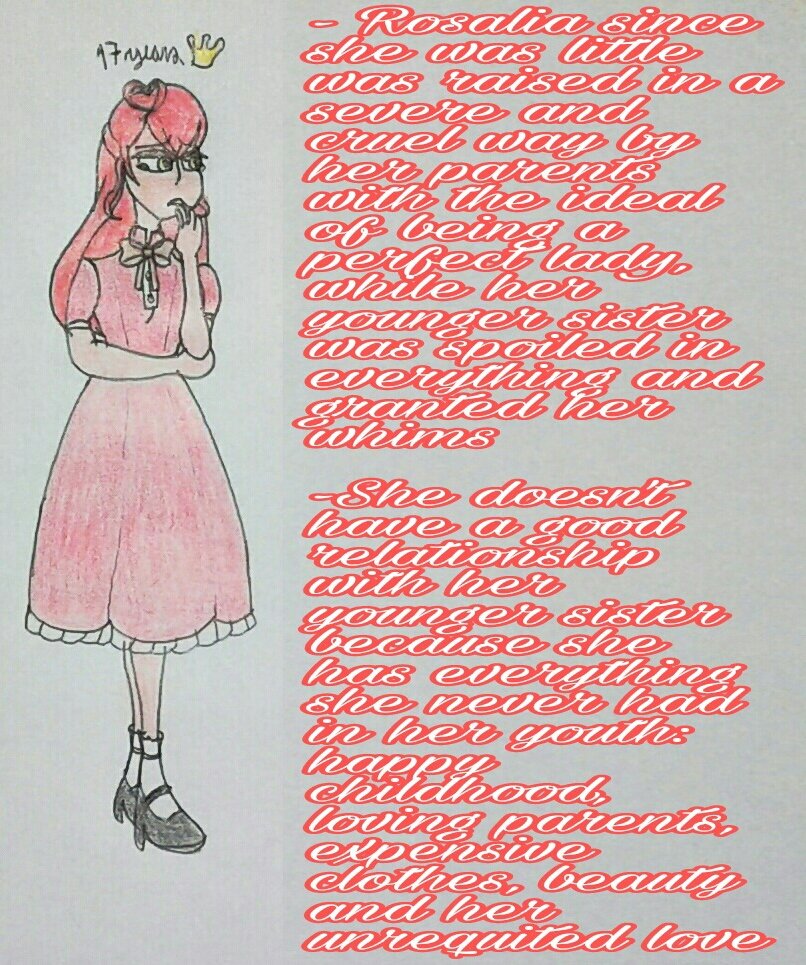 17 years
- Rosalia since
she was little
was raised in a
severe and
cruel way by
her parents
with the ideal
of being a
perfect lady,
while her
younger sister
was spoiled in
everything and
granted her
whims
-She doesn't
have a good
relationship
with her
younger sister
because she
has everything
she never had
in her youth:
happy
childhood,
loving parents,
expensive
clothes, beauty
and her
unrequited love